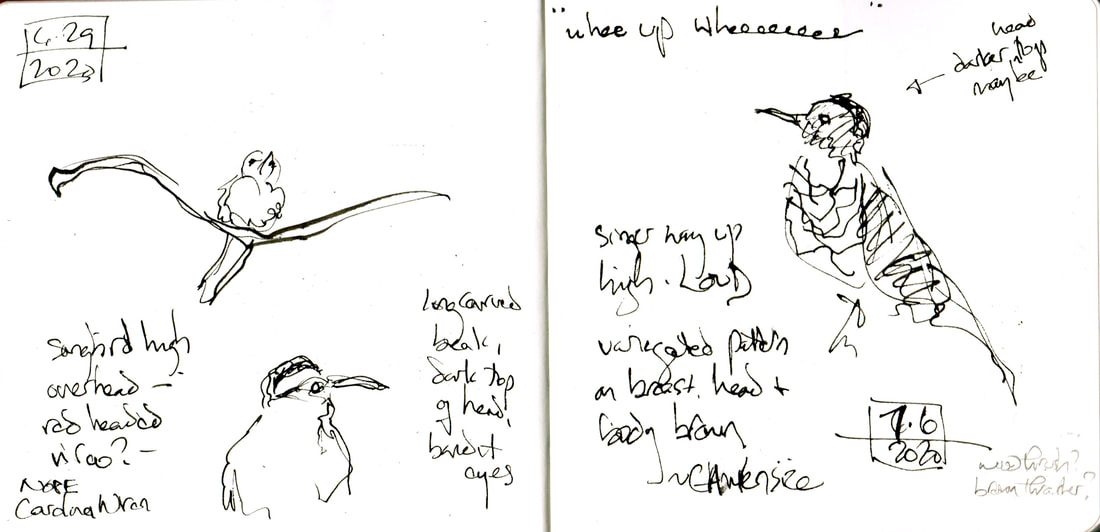 4.29
2023
songbird high
overhead -
red headed
virao? -
NOPE
Carolina Wren
long curved
beak,
dark top
of head,
bandit
eyes
"whee up Wheeeeeee"
head
darker, tops
maybe
singer way up
high. LOUD
variegated pattern
on breast. head +
body brown
7.6
2020
wood thrush?
brown thrasher?